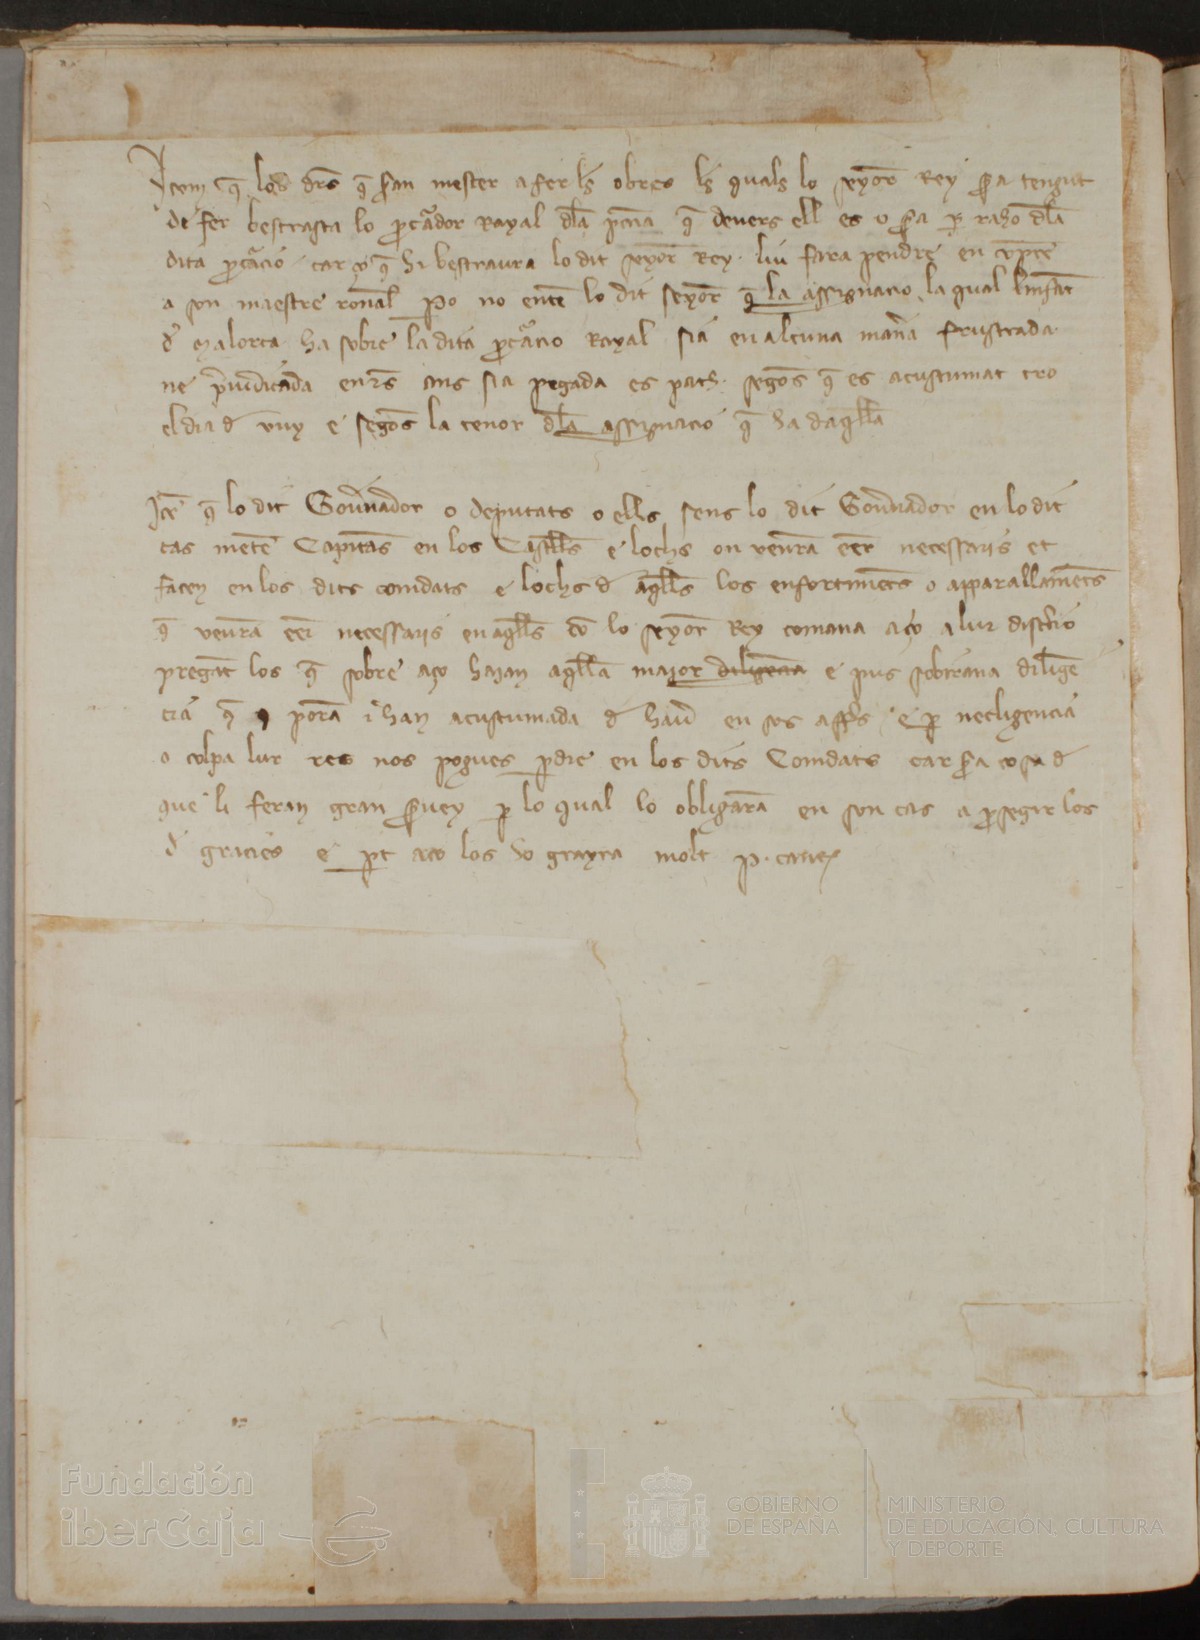 Item q̄ los drs̄ q̄ s̄ran mester a fer ls̄ obres ls̄ quals lo seyōr Rey s̄ra tengut
de fer bestrasta lo p̄curador Rayal dl̄a p̄cuā q̄ devers ell es o s̄ra p̄ raho dl̄a
dita p̄curacio car ço q̄ hi bestraura lo dit seyōr Rey liu fara pendre en cōpte
a son maestre ronal P̄o no entē lo dit seyōr q̄ la assignacio la qual linfāt
đ Malorca ha sobre la dita p̄curacio Rayal sia en alcuna manā frustrada
ne p̄iudicada en rs̄ ans sia pagada es pach segōs q̄ es acustumat tro
el dia đ vuy e segōs la tenor dl̄a assignacio q̄ ha daq̄lla
Itē q̄ lo dit Gou̅nador o deputats o ells sens lo dit Gou̅nador en lo dit
cas metē Capitās en los Castells e lochs on veurā eēr necessaris et
facen en los dits comdats e lochs đ aq̄lls los enfortimēts o apparallamēts
q̄ veurā eēr necessaris en aq̄lls cō lo seyōr Rey comana aço a lur discrecio
pregāt los q̄ sobre aço hajan aq̄lla major diligencia e pus sobirana diligē
cia q̄ porā i han acustumada đ hau̅ en sos affs̄ e p̄ necligencia
o colpa lur res nos pogues p̄dre en los dits Comdats car s̄ra cosa đ
que li feran gran s̄uey p̄ lo qual lo obligarā en son cas a p̄seguir los
đ gracies e p̄t aço los ho grayra molt P. ca
Fundación
iberCaja
GOBIERNO
DE ESPAÑA
MINISTERIO
DE EDUCACIÓN, CULTURA
Y DEPORTE